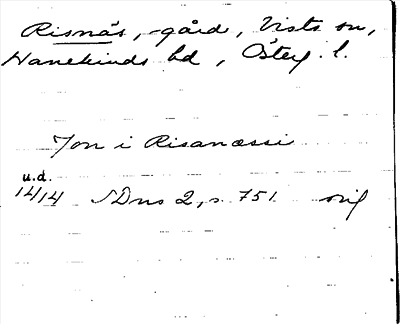 Risnäs, gård, Vists sn,
Hanekinds hd, Österg. l.
Jon i Risanæssi
u.d.
1414 SDns 2, s. 751. orig